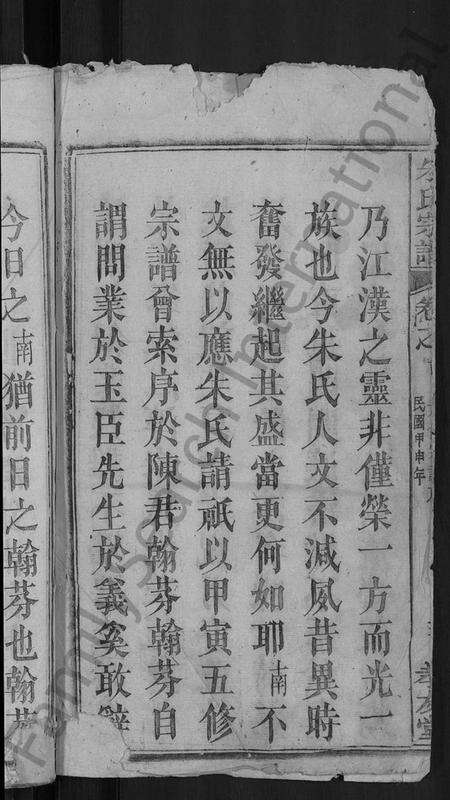 朱氏宗譜
卷之
民國甲申年
乃江漢之靈非僅榮一方而光一
族也今朱氏人文不減夙昔異時
奮發繼起其盛當更何如耶南不
文無以應朱氏請祇以甲寅五修
宗譜曾索序於陳君翰芬翰芬自
謂問業於玉臣先生於義奚敢辭
今日之南猶前日之翰芬也翰芬
FamilySearch International